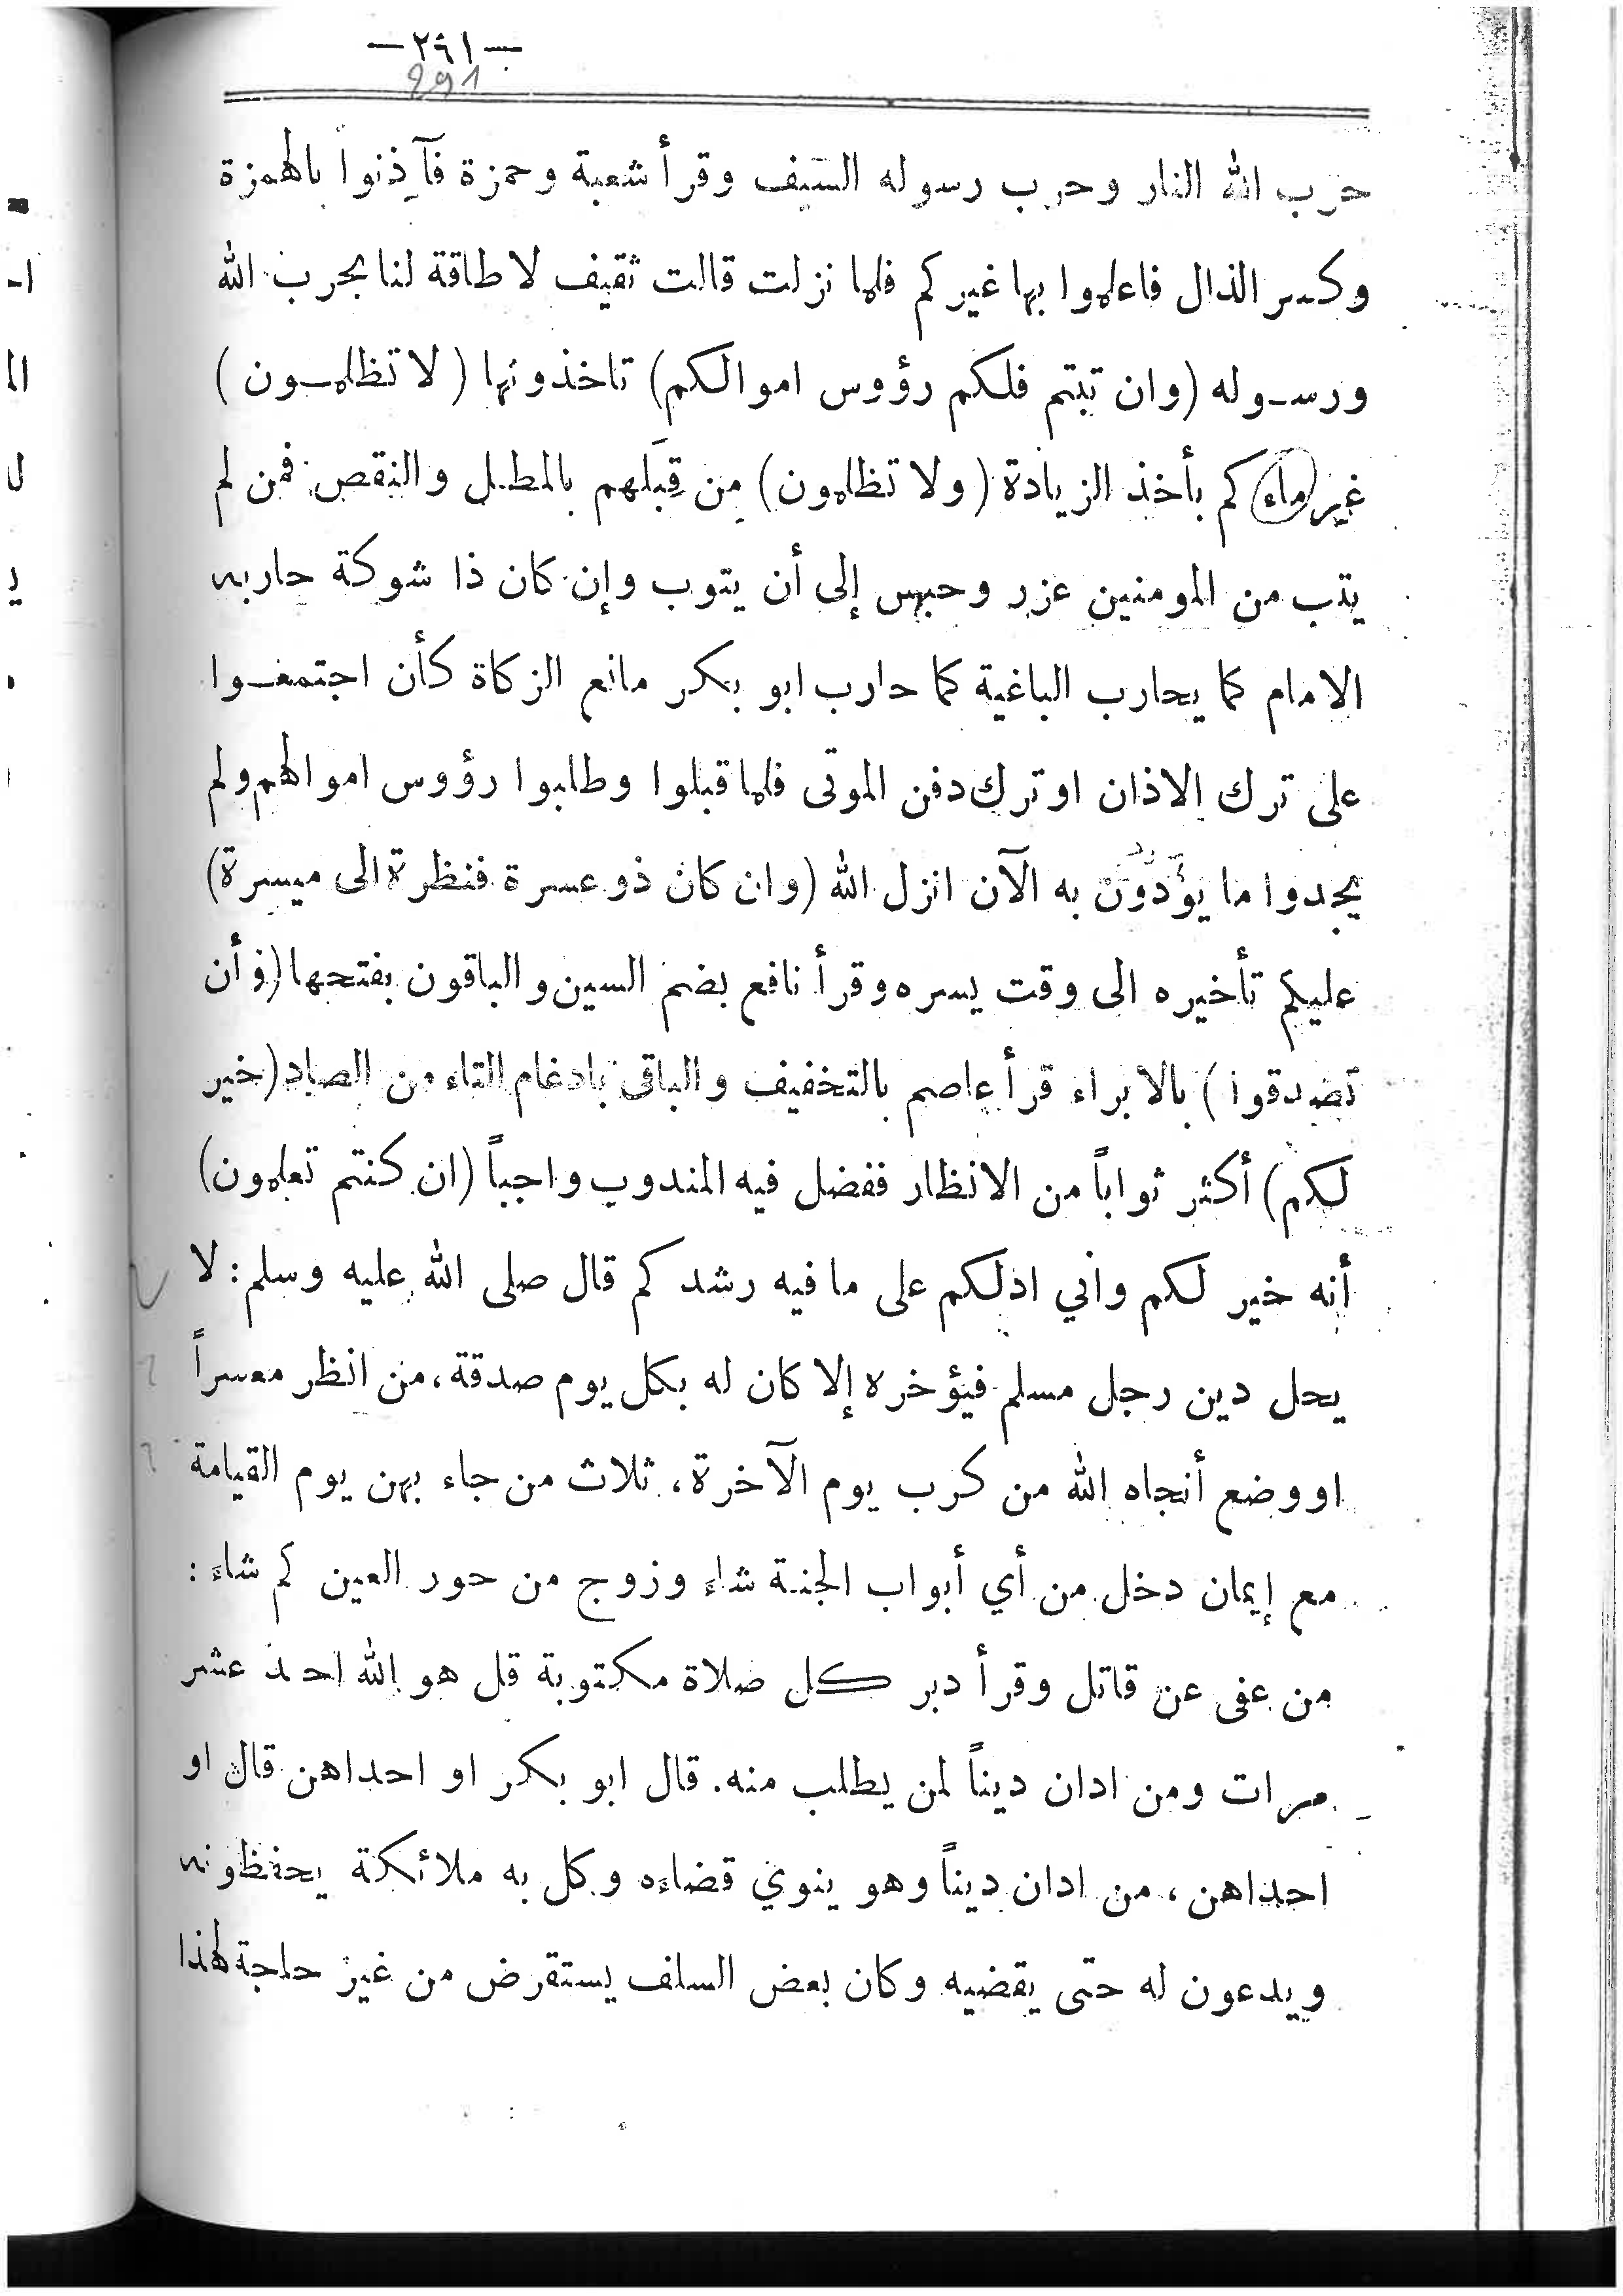 — ٢٩١ —
291
حرب الله النار وحرب رسوله السيف وقرأ شعبة وحمزة فآذِنوا بالهمزة
وكسر الذال فاعلموا بها غيركم فلما نزلت قالت ثقيف لا طاقة لنا بحرب الله
ورسوله (وان تبتم فلكم رؤوس اموالكم) تاخذونها (لا تظلمون)
غير ماء كم بأخذ الزيادة (ولا تظلمون) من قِبَلهم بالمطل والنقص فمن لم
يتب من المومنين عزر وحبس إلى أن يتوب وإن كان ذا شوكة حاربه
الامام كما يحارب الباغية كما حارب ابو بكر مانع الزكاة كأن اجتمعوا
على ترك الاذان او ترك دفن الموتى فلما قبلوا وطلبوا رؤوس اموالهم ولم
يجدوا ما يؤدون به الآن انزل الله (وان كان ذو عسرة فنظرة الى ميسرة)
عليكم تأخيره الى وقت يسره وقرأ نافع بضم السين والباقون بفتحها (وأن
تصدقوا) بالابراء قرأ عاصم بالتخفيف والباقى بادغام التاء من الصاد (خير
لكم) أكثر ثواباً من الانظار ففضل فيه المندوب واجباً (ان كنتم تعلمون)
أنه خير لكم واني ادلكم على ما فيه رشدكم قال صلى الله عليه وسلم: لا
يحل دين رجل مسلم فيؤخره إلا كان له بكل يوم صدقة، من انظر معسراً
او وضع أنجاه الله من كرب يوم الآخرة، ثلاث من جاء بهن يوم القيامة
مع إيمان دخل من أي أبواب الجنة شاء وزوج من حور العين كم شاء:
من عفى عن قاتل وقرأ دبر كل صلاة مكتوبة قل هو الله احد عشر
مرات ومن ادان ديناً لمن يطلب منه. قال ابو بكر او احداهن قال او
احداهن، من ادان ديناً وهو ينوي قضاءه وكل به ملائكة يحفظونه
ويدعون له حتى يقضيه وكان بعض السلف يستقرض من غير حاجة لهذا